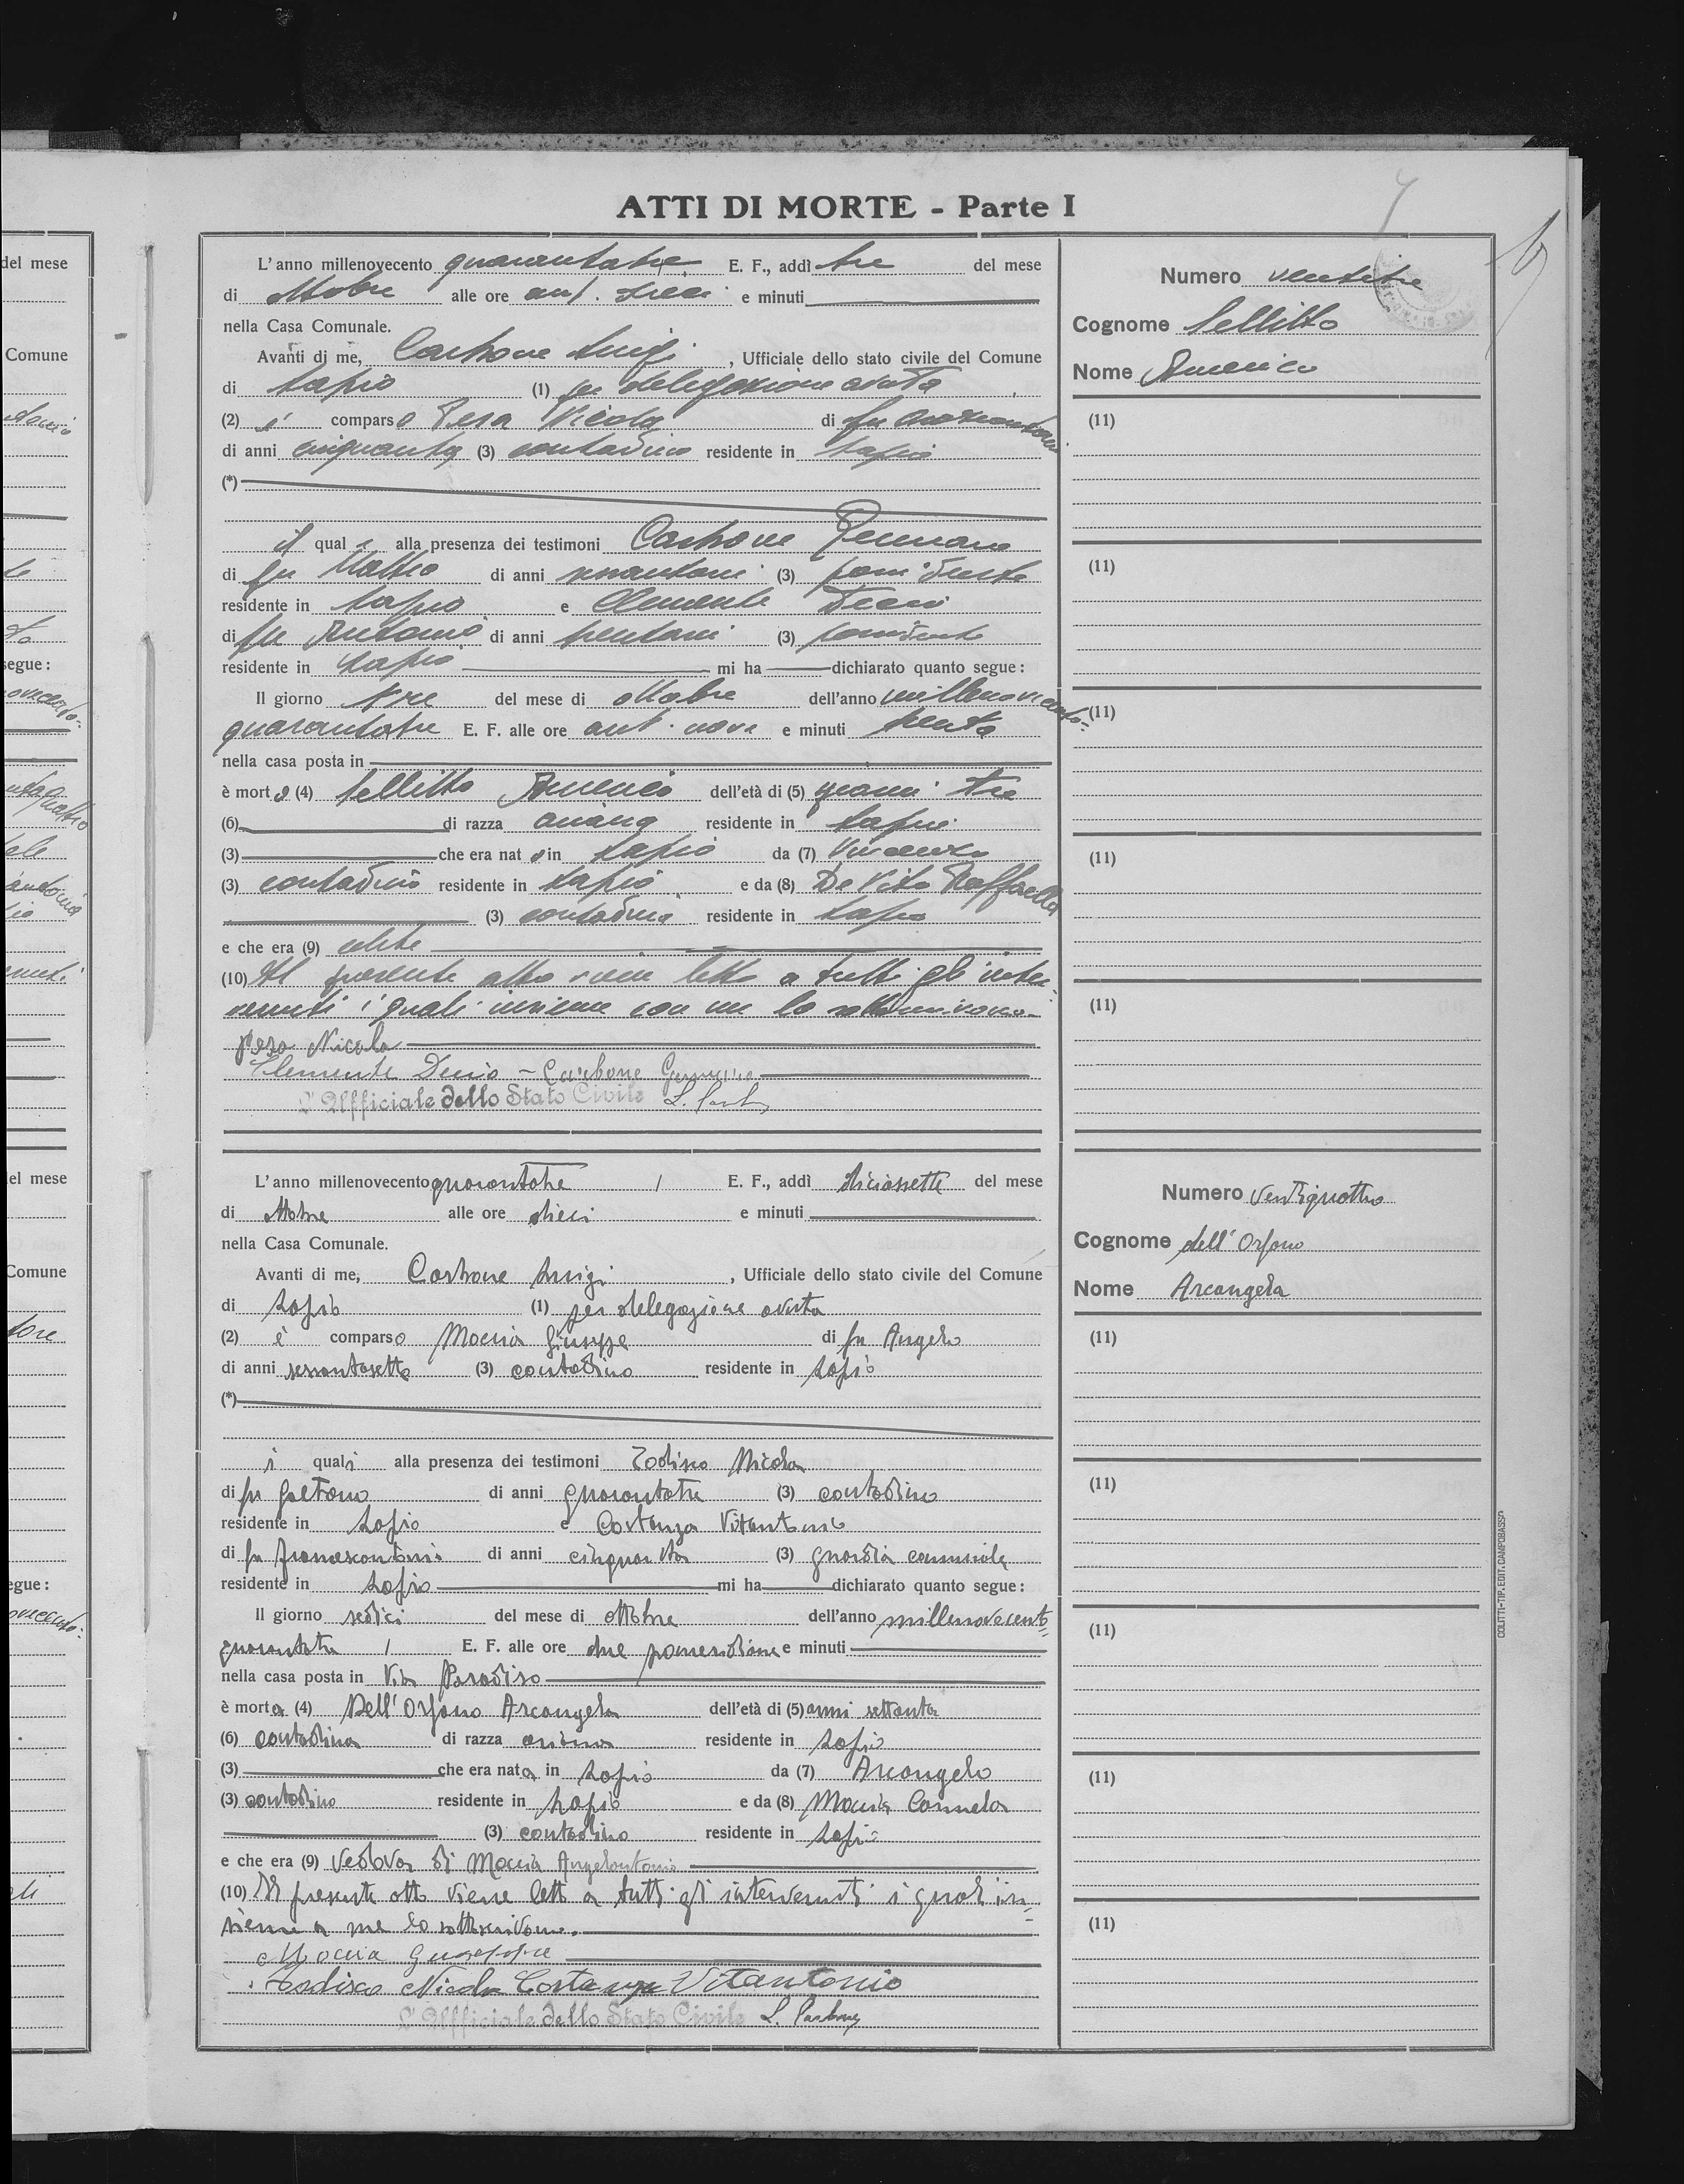 ATTI DI MORTE - Parte I
7
L'anno millenovecento quarantatre E. F., addì tre del mese
di Ottobre alle ore ant. dieci e minuti
nella Casa Comunale.
Avanti di me, Carbone Luigi, Ufficiale dello stato civile del Comune
di Lapio (1) per delegazione avuta
(2) è comparso Pesa Nicola di fu
di anni cinquanta (3) contadino residente in Lapio
(*)
il quale alla presenza dei testimoni Carbone Gennaro
di fu Matteo di anni (3) possidente
residente in Lapio e Clemente Decio
di fu Antonio di anni (3) possidente
residente in Lapio mi ha dichiarato quanto segue:
Il giorno tre del mese di ottobre dell'anno millenovecento-
quarantatre E. F. alle ore ant. nove e minuti trenta
nella casa posta in
è morto (4) Sellitto Americo dell'età di (5) giorni tre
(6) di razza ariana residente in Lapio
(3) che era nato in Lapio da (7) Vincenzo
(3) contadino residente in Lapio e da (8) De Vito Raffaella
(3) contadina residente in Lapio
e che era (9) celibe
(10) Il presente atto viene letto a tutti gli inter-
venuti i quali insieme con me lo sottoscrivono.
Pesa Nicola
Clemente Decio - Carbone Gennaro
L'Ufficiale dello Stato Civile L. Carbone
Numero ventitre
Cognome Sellitto
Nome Americo
(11)
(11)
(11)
(11)
(11)
L'anno millenovecento quarantatre / E. F., addì diciassette del mese
di Ottobre alle ore dieci e minuti
nella Casa Comunale.
Avanti di me, Carbone Luigi, Ufficiale dello stato civile del Comune
di Lapio (1) per delegazione avuta
(2) è comparso Moccia Giuseppe di fu Angelo
di anni sessantasette (3) contadino residente in Lapio
(*)
i quali alla presenza dei testimoni Todisco Nicola
di fu Gaetano di anni quarantatre (3) contadino
residente in Lapio e Costanza Vitantonio
di fu Francescantonio di anni cinquanta (3) guardia comunale
residente in Lapio mi ha dichiarato quanto segue:
Il giorno sedici del mese di ottobre dell'anno millenovecento=
quarantatre / E. F. alle ore due pomeridiane e minuti
nella casa posta in Via Paradiso
è morta (4) Dell'Orfano Arcangela dell'età di (5) anni settanta
(6) contadina di razza ariana residente in Lapio
(3) che era nata in Lapio da (7) Arcangelo
(3) contadino residente in Lapio e da (8) Moccia Carmela
(3) contadina residente in Lapio
e che era (9) vedova di Moccia Angelantonio
(10) Il presente atto viene letto a tutti gli intervenuti i quali in=
sieme a me lo sottoscrivono.
Moccia Giuseppe
Todisco Nicola Costanza Vitantonio
L'Ufficiale dello Stato Civile L. Carbone
Numero ventiquattro
Cognome dell'Orfano
Nome Arcangela
(11)
(11)
(11)
(11)
(11)
COLITTI-TIP. EDIT. CAMPOBASSO